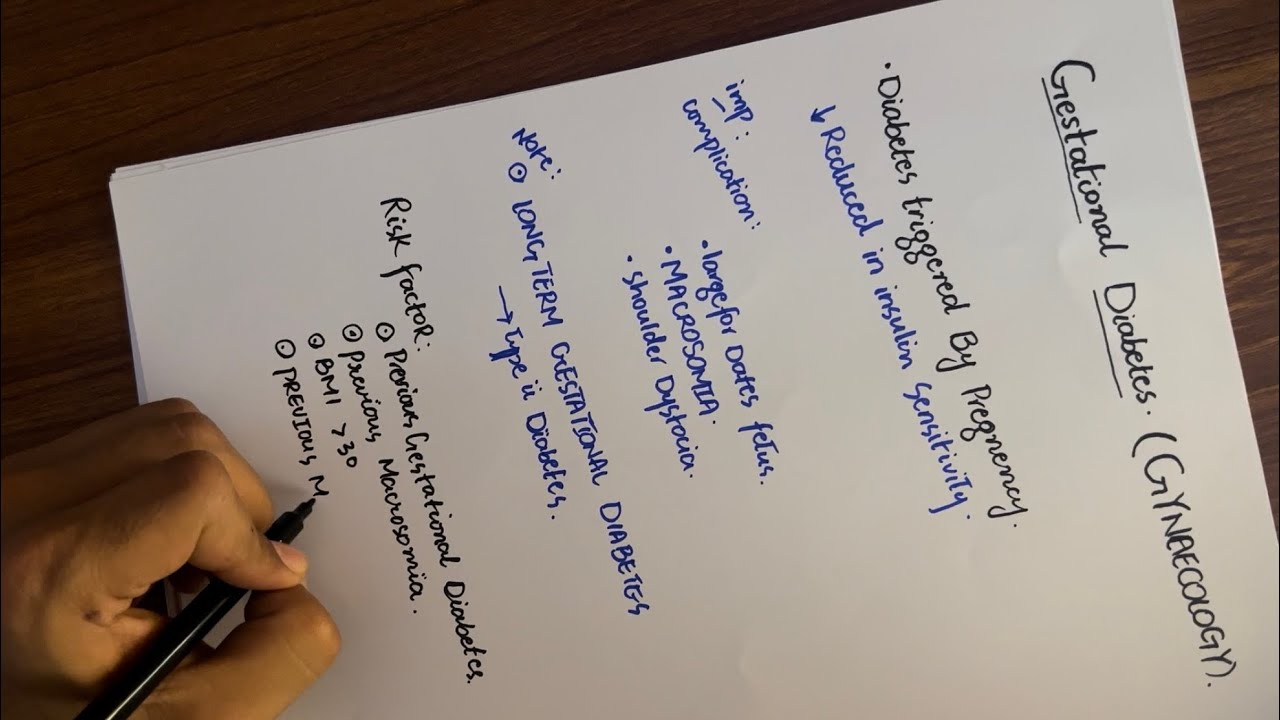 Gestational Diabetes. (GYNAECOLOGY).
• Diabetes triggered By Pregnency.
↓ Reduced in insulin sensitivity.
imp:
complication:
• large for Dates fetus.
• MACROSOMIA.
• Shoulder Dystocia.
Note:
⊙ LONG TERM GESTATIONAL DIABETES
→ Type ii Diabetes.
Risk factor:
⊙ Previous Gestational Diabetes.
⊙ Previous Macrosomia.
⊙ BMI > 30
⊙ PREVIOUS M